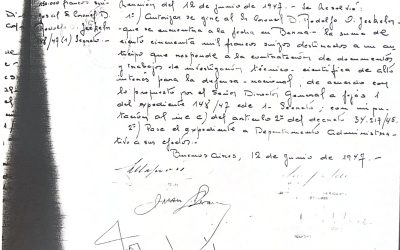 Reunión del 12 de junio de 1947. - Se Resolvió:
1º) Autorizar se gire al Coronel D. Rodolfo O. Jeckeln -
que se encuentra a la fecha en Berna - la suma de
ciento cincuenta mil francos suizos destinados a un an-
ticipo que responde a la contratación de documentos
y trabajos de investigación técnico-científica de alto
interés para la defensa nacional, de acuerdo con
lo propuesto por el Señor Director General a fojas 1
del expediente 148/47 de 1- Secreto -, con impu-
tación al inc c) del artículo 2º del decreto 34.219/45.
2º) Pase el expediente a Departamento Administra-
tivo a sus efectos. -
Buenos Aires, 12 de junio de 1947. -
francos sui-
Coronel D.
Jeckeln
Secreto -